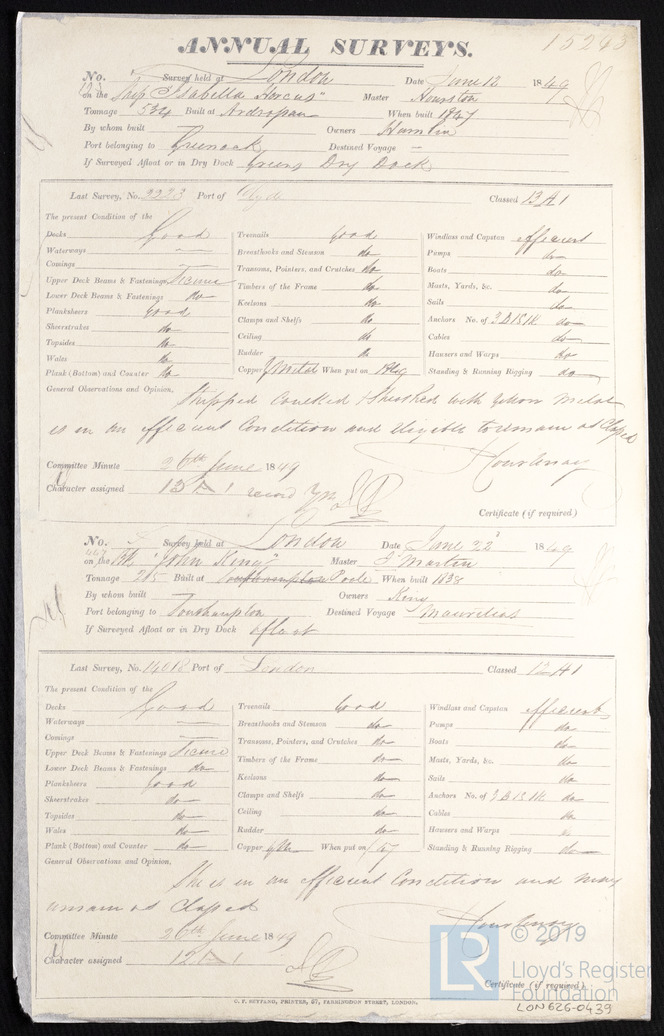 ANNUAL SURVEYS.
No. Survey held at London Date June 12 1849
on the Ship "Isabella Hercus" Master Houston
Tonnage Built at When built 1847
By whom built Owners Hamlin
Port belonging to Greenock Destined Voyage —
If Surveyed Afloat or in Dry Dock Greens Dry Dock
Last Survey, No. 2233 Port of Clyde Classed 13 A 1
The present Condition of the
Decks Good Treenails Good Windlass and Capstan efficient
Waterways — Breasthooks and Stemson do Pumps do
Comings — Transoms, Pointers, and Crutches do Boats do
Upper Deck Beams & Fastenings Secure Timbers of the Frame do Masts, Yards, &c. do
Lower Deck Beams & Fastenings do Keelsons do Sails do
Planksheers Good Clamps and Shelfs do Anchors No. of 3 B 1 S 1 K do
Sheerstrakes do Ceiling do Cables do
Topsides do Rudder do Hawsers and Warps do
Wales do Copper Y Metal When put on Standing & Running Rigging do
Plank (Bottom) and Counter do
General Observations and Opinion, Stripped Caulked & Sheathed with Yellow Metal
is in an efficient Condition and eligible to remain as Classed
Courtenay
Committee Minute 26th June 1849
Character assigned 13 A 1 record YM
Certificate (if required)
No. Survey held at London Date June 22 1849
on the Bk "John King" Master J Martin
Tonnage 215 Built at Southampton Poole When built 1838
By whom built Owners King
Port belonging to Southampton Destined Voyage Mauritius
If Surveyed Afloat or in Dry Dock afloat
Last Survey, No. 14018 Port of London Classed 12 A 1
The present Condition of the
Decks Good Treenails Good Windlass and Capstan efficient
Waterways — Breasthooks and Stemson do Pumps do
Comings — Transoms, Pointers, and Crutches do Boats do
Upper Deck Beams & Fastenings Secure Timbers of the Frame do Masts, Yards, &c. do
Lower Deck Beams & Fastenings do Keelsons do Sails do
Planksheers Good Clamps and Shelfs do Anchors No. of 3 B 1 S 1 K do
Sheerstrakes do Ceiling do Cables do
Topsides do Rudder do Hawsers and Warps
Wales do Copper When put on /47 Standing & Running Rigging do
Plank (Bottom) and Counter do
General Observations and Opinion,
She is in an efficient Condition and may
remain as Classed
Courtenay
Committee Minute 26th June 1849
Character assigned 12 A 1
Certificate (if required)
C. F. SEYFANG, PRINTER, 57, FARRINGDON STREET, LONDON.
LR © 2019
Lloyd's Register
Foundation
LON626-0439